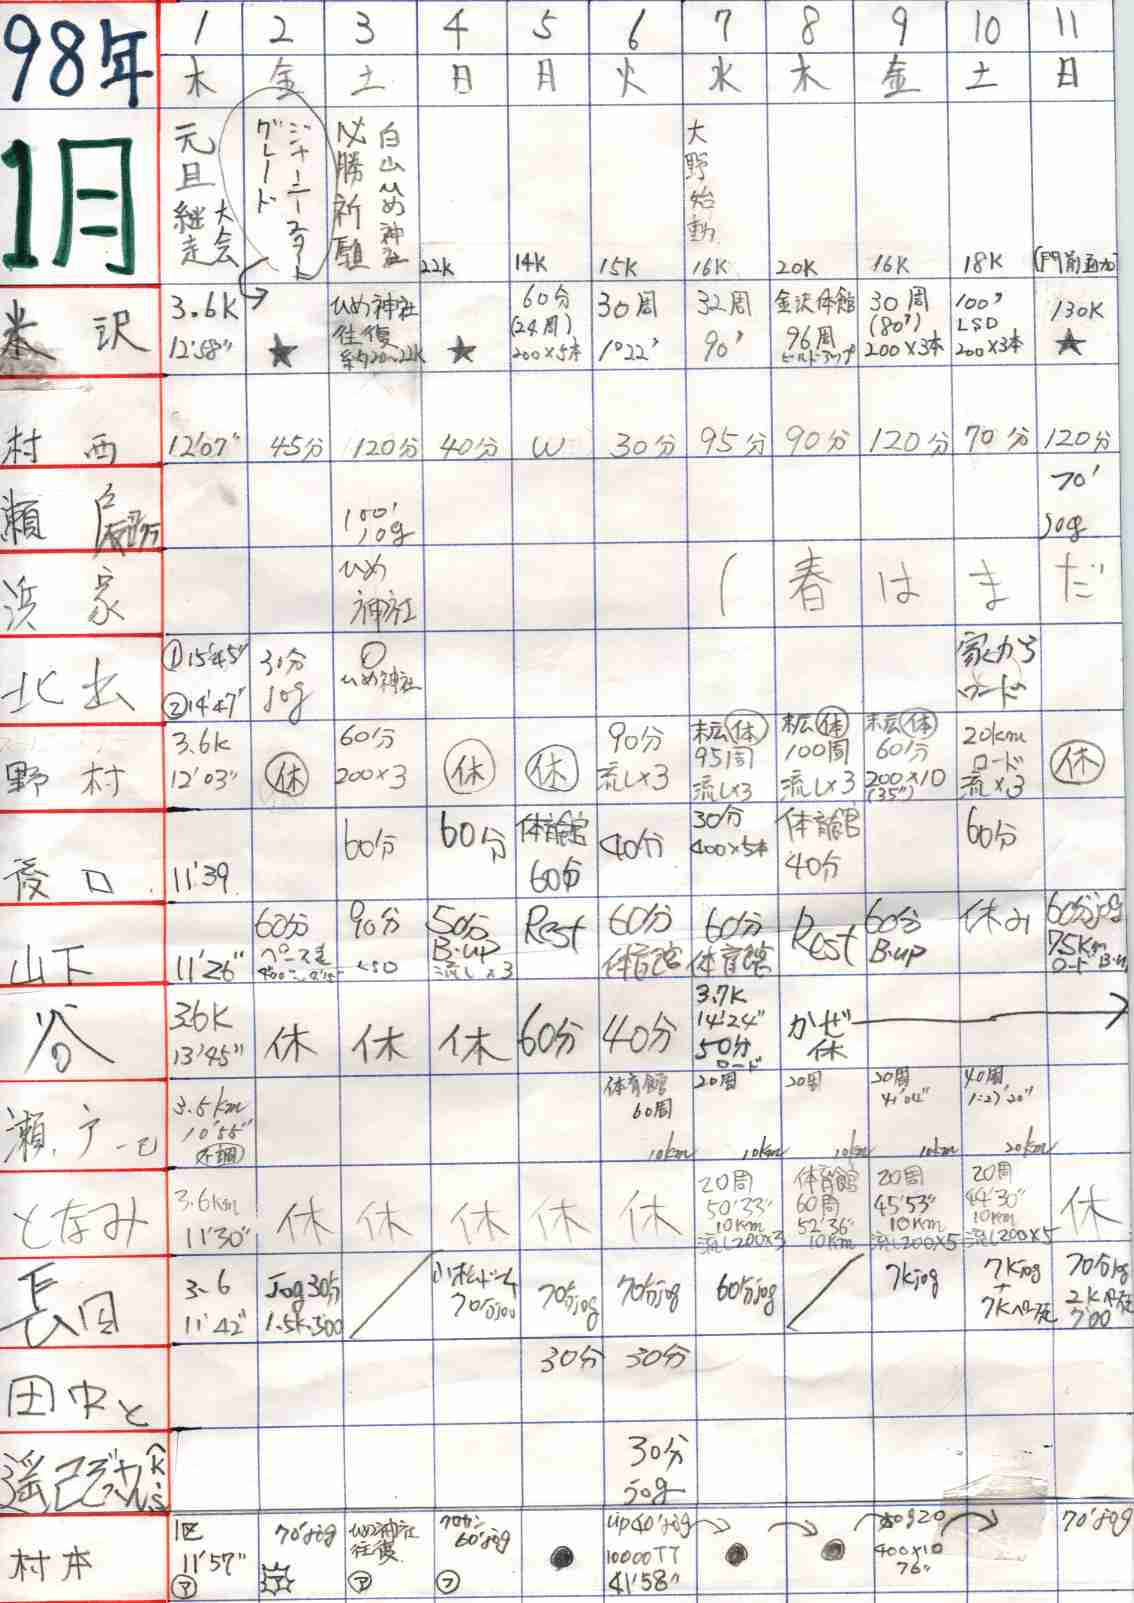 98年 1 2 3 4 5 6 7 8 9 10 11
木 金 土 日 月 火 水 木 金 土 日
1月
元旦継走大会
ジャーニースタート
グレード
白山ひめ神社
必勝祈願
大野始動
22K 14K 15K 16K 20K 16K 18K
米沢
3.6K
12'58"
★
ひめ神社
往復
約20~22K
★
60分
(24周)
200×5本
30周
1°22'
32周
90'
金沢体館
96周
ビルドアップ
30周
(80')
200×3本
100'
LSD
200×3本
130K
★
村西 12'07" 45分 120分 40分 W 30分 95分 90分 120分 70分 120分
瀬戸
100'
jog
70'
jog
浜家
ひめ
神社
(春はまだ
北出
①15'45"
②14'47"
30分
jog
ひめ神社
家から
ロード
野村
3.6K
12'03"
休
60分
200×3
休
休
90分
流し×3
末広休
95周
流し×3
末広休
100周
流し×3
末広休
60分
200×10
(35")
20km
ロード
流×3
休
後口
11'39
60分
60分
体育館
60分
40分
30分
400×5本
体育館
40分
60分
山下
11'26"
60分
ペース走
90分
LSD
50分
B.up
流し×3
Rest
60分
体育館
60分
体育館
Rest
60分
B.up
休み
60分jog
7.5Km
ロード B.up
谷
3.6K
13'45"
休 休 休 60分 40分
3.7K
14'24"
50分
ロード
かぜ
休
瀬戸
3.5km
10'55"
不調
体育館
60周
10km
20周
10km
20周
10km
20周
41'04"
10km
40周
1:27'20"
20km
となみ
3.6km
11'30"
休 休 休 休 休
20周
50'33"
10km
流し200×3
体育館
60周
52'36"
10km
20周
45'53"
10km
流し200×5
20周
44'30"
10km
流し200×5
休
長田
3.6
11'42"
Jog30分
1.5K.300
小松ドーム
70分jog
70分jog
70分jog
60分jog
7kjog
7Kjog
+
7Kペース走
70分jog
2Kペース走
7'00
田中と
30分 30分
遥己ぞうさん
30分
jog
村本
1区
11'57"
ア
70'jog
ひめ神社
往復
ア
60'jog
フ
up40'jog
10000TT
41'58"
jog20
400×10
76"
70'jog